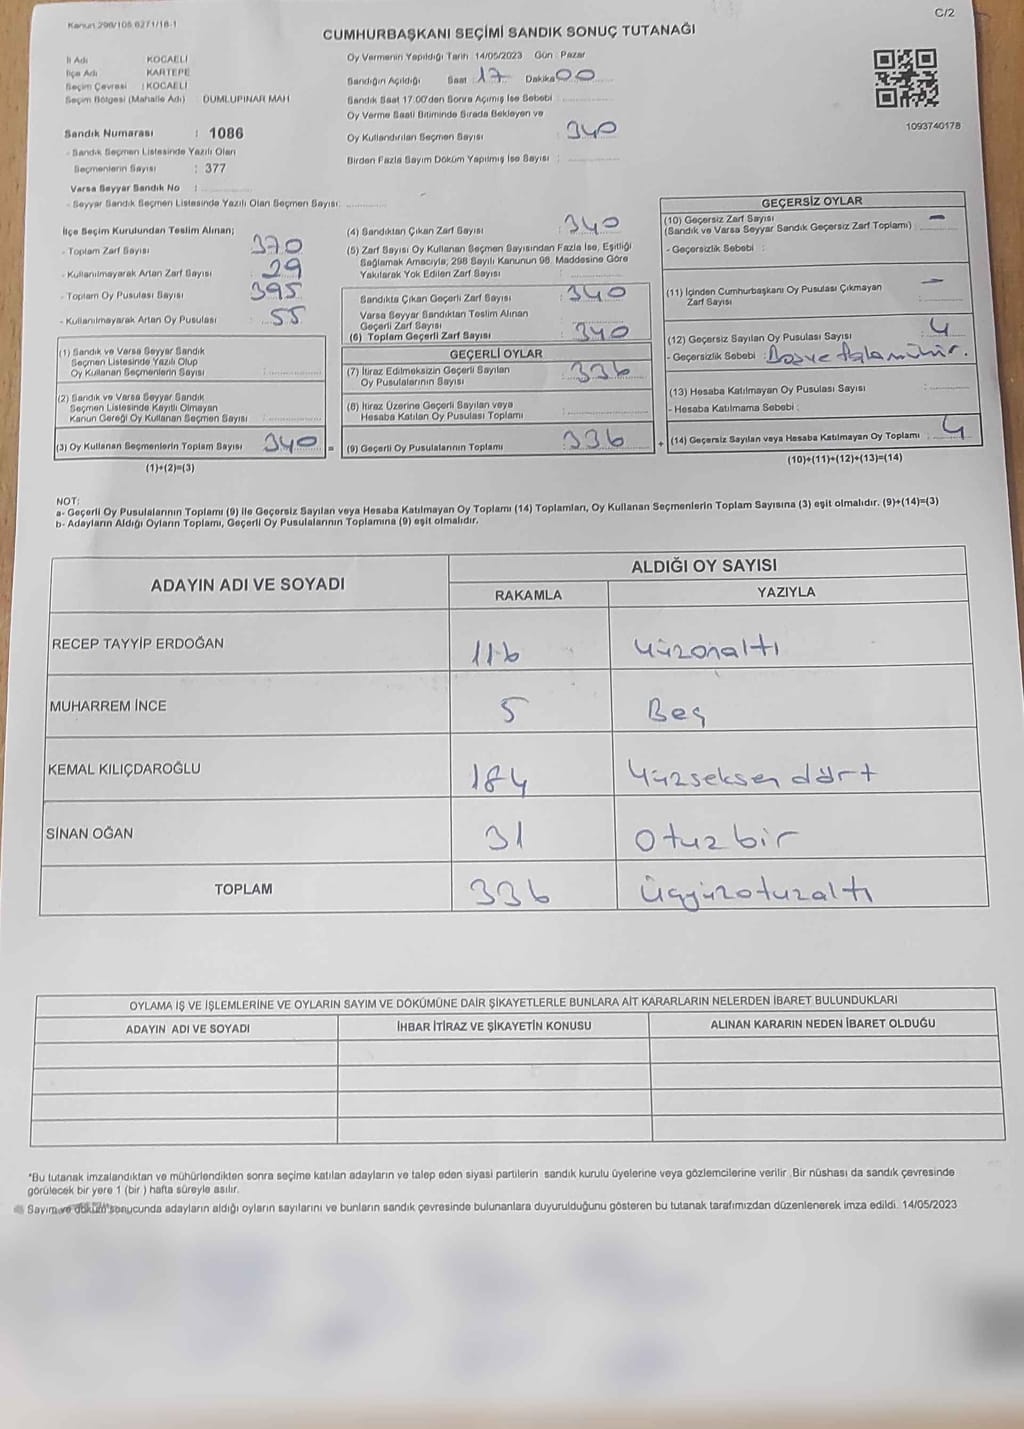 Kanun 298/105 6271/16-1
C/2
CUMHURBAŞKANI SEÇİMİ SANDIK SONUÇ TUTANAĞI
İl Adı KOCAELİ
İlçe Adı KARTEPE
Seçim Çevresi : KOCAELİ
Seçim Bölgesi (Mahalle Adı) DUMLUPINAR MAH
Sandık Numarası : 1086
- Sandık Seçmen Listesinde Yazılı Olan
Seçmenlerin Sayısı : 377
Varsa Seyyar Sandık No :
- Seyyar Sandık Seçmen Listesinde Yazılı Olan Seçmen Sayısı:
Oy Vermenin Yapıldığı Tarih : 14/05/2023 Gün : Pazar
Sandığın Açıldığı Saat : 17 Dakika 00
Sandık Saat 17:00'den Sonra Açımış İse Sebebi :
Oy Verme Saati Bitiminde Sırada Bekleyen ve
Oy Kullandırılan Seçmen Sayısı : 340
Birden Fazla Sayım Döküm Yapılmış İse Sayısı :
1093740178
İlçe Seçim Kurulundan Teslim Alınan;
- Toplam Zarf Sayısı 370
- Kullanılmayarak Artan Zarf Sayısı 29
- Toplam Oy Pusulası Sayısı 395
- Kullanılmayarak Artan Oy Pusulası 55
(1) Sandık ve Varsa Seyyar Sandık
Seçmen Listesinde Yazılı Olup
Oy Kullanan Seçmenlerin Sayısı :
(2) Sandık ve Varsa Seyyar Sandık
Seçmen Listesinde Kayıtlı Olmayan
Kanun Gereği Oy Kullanan Seçmen Sayısı :
(3) Oy Kullanan Seçmenlerin Toplam Sayısı 340 =
(1)+(2)=(3)
(4) Sandıktan Çıkan Zarf Sayısı : 340
(5) Zarf Sayısı Oy Kullanan Seçmen Sayısından Fazla İse, Eşitliği
Sağlamak Amacıyla, 298 Sayılı Kanunun 98. Maddesine Göre
Yakılarak Yok Edilen Zarf Sayısı :
Sandıkta Çıkan Geçerli Zarf Sayısı : 340
Varsa Seyyar Sandıktan Teslim Alınan
Geçerli Zarf Sayısı
(6) Toplam Geçerli Zarf Sayısı : 340
GEÇERLİ OYLAR
(7) İtiraz Edilmeksizin Geçerli Sayılan
Oy Pusulalarının Sayısı : 336
(8) İtiraz Üzerine Geçerli Sayılan veya
Hesaba Katılan Oy Pusulası Toplamı :
(9) Geçerli Oy Pusulalarının Toplamı : 336 +
GEÇERSİZ OYLAR
(10) Geçersiz Zarf Sayısı
(Sandık ve Varsa Seyyar Sandık Geçersiz Zarf Toplamı) : -
- Geçersizlik Sebebi :
(11) İçinden Cumhurbaşkanı Oy Pusulası Çıkmayan
Zarf Sayısı : -
(12) Geçersiz Sayılan Oy Pusulası Sayısı : 4
- Geçersizlik Sebebi :
(13) Hesaba Katılmayan Oy Pusulası Sayısı :
- Hesaba Katılmama Sebebi :
(14) Geçersiz Sayılan veya Hesaba Katılmayan Oy Toplamı : 4
(10)+(11)+(12)+(13)=(14)
NOT:
a- Geçerli Oy Pusulalarının Toplamı (9) ile Geçersiz Sayılan veya Hesaba Katılmayan Oy Toplamı (14) Toplamları, Oy Kullanan Seçmenlerin Toplam Sayısına (3) eşit olmalıdır. (9)+(14)=(3)
b- Adayların Aldığı Oyların Toplamı, Geçerli Oy Pusulalarının Toplamına (9) eşit olmalıdır.
ADAYIN ADI VE SOYADI ALDIĞI OY SAYISI
RAKAMLA YAZIYLA
RECEP TAYYİP ERDOĞAN 116 Yüzonaltı
MUHARREM İNCE 5 Beş
KEMAL KILIÇDAROĞLU 184 Yüzseksen dört
SİNAN OĞAN 31 Otuz bir
TOPLAM 336 Üçyüzotuzaltı
OYLAMA İŞ VE İŞLEMLERİNE VE OYLARIN SAYIM VE DÖKÜMÜNE DAİR ŞİKAYETLERLE BUNLARA AİT KARARLARIN NELERDEN İBARET BULUNDUKLARI
ADAYIN ADI VE SOYADI İHBAR İTİRAZ VE ŞİKAYETİN KONUSU ALINAN KARARIN NEDEN İBARET OLDUĞU
*Bu tutanak imzalandıktan ve mühürlendikten sonra seçime katılan adayların ve talep eden siyasi partilerin sandık kurulu üyelerine veya gözlemcilerine verilir. Bir nüshası da sandık çevresinde
görülecek bir yere 1 (bir ) hafta süreyle asılır.
Sayım ve döküm sonucunda adayların aldığı oyların sayılarını ve bunların sandık çevresinde bulunanlara duyurulduğunu gösteren bu tutanak tarafımızdan düzenlenerek imza edildi. 14/05/2023